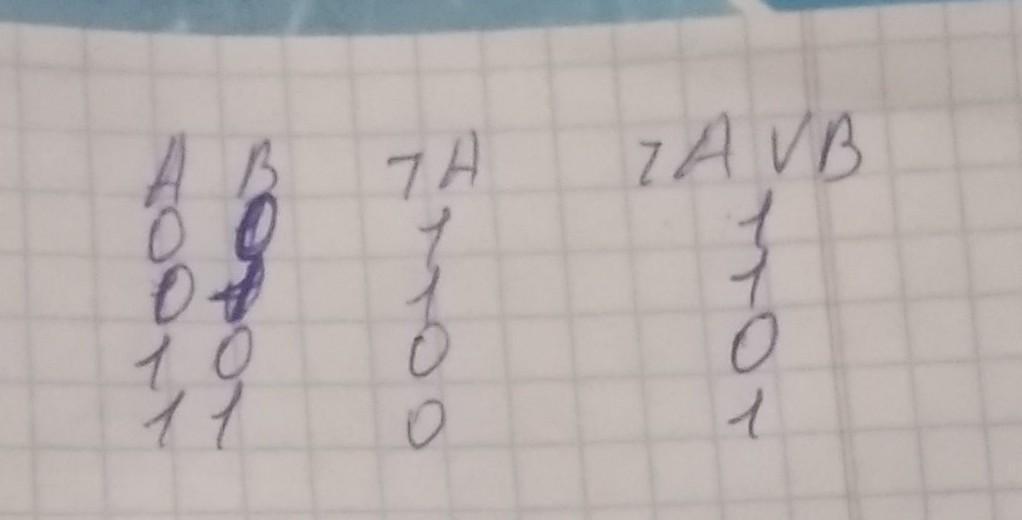 A B ¬A ¬A ∨ B
0 0 1 1
0 1 1 1
1 0 0 0
1 1 0 1